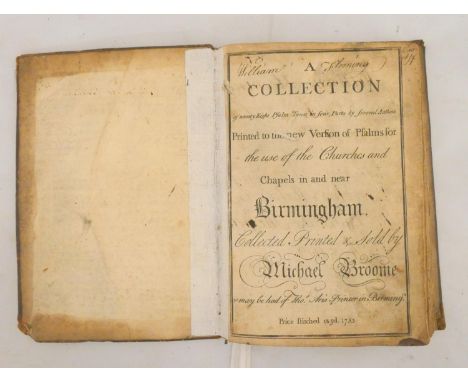 William Fleming
A
COLLECTION
of Psalm Tunes in four Parts by several Authors
Printed to the new Version of Psalms for
the use of the Churches and
Chapels in and near
Birmingham.
Collected Printed & Sold by
Michael Broome
may be had of Tho.s Aris Printer in Birming.m
Price Stitched 1752